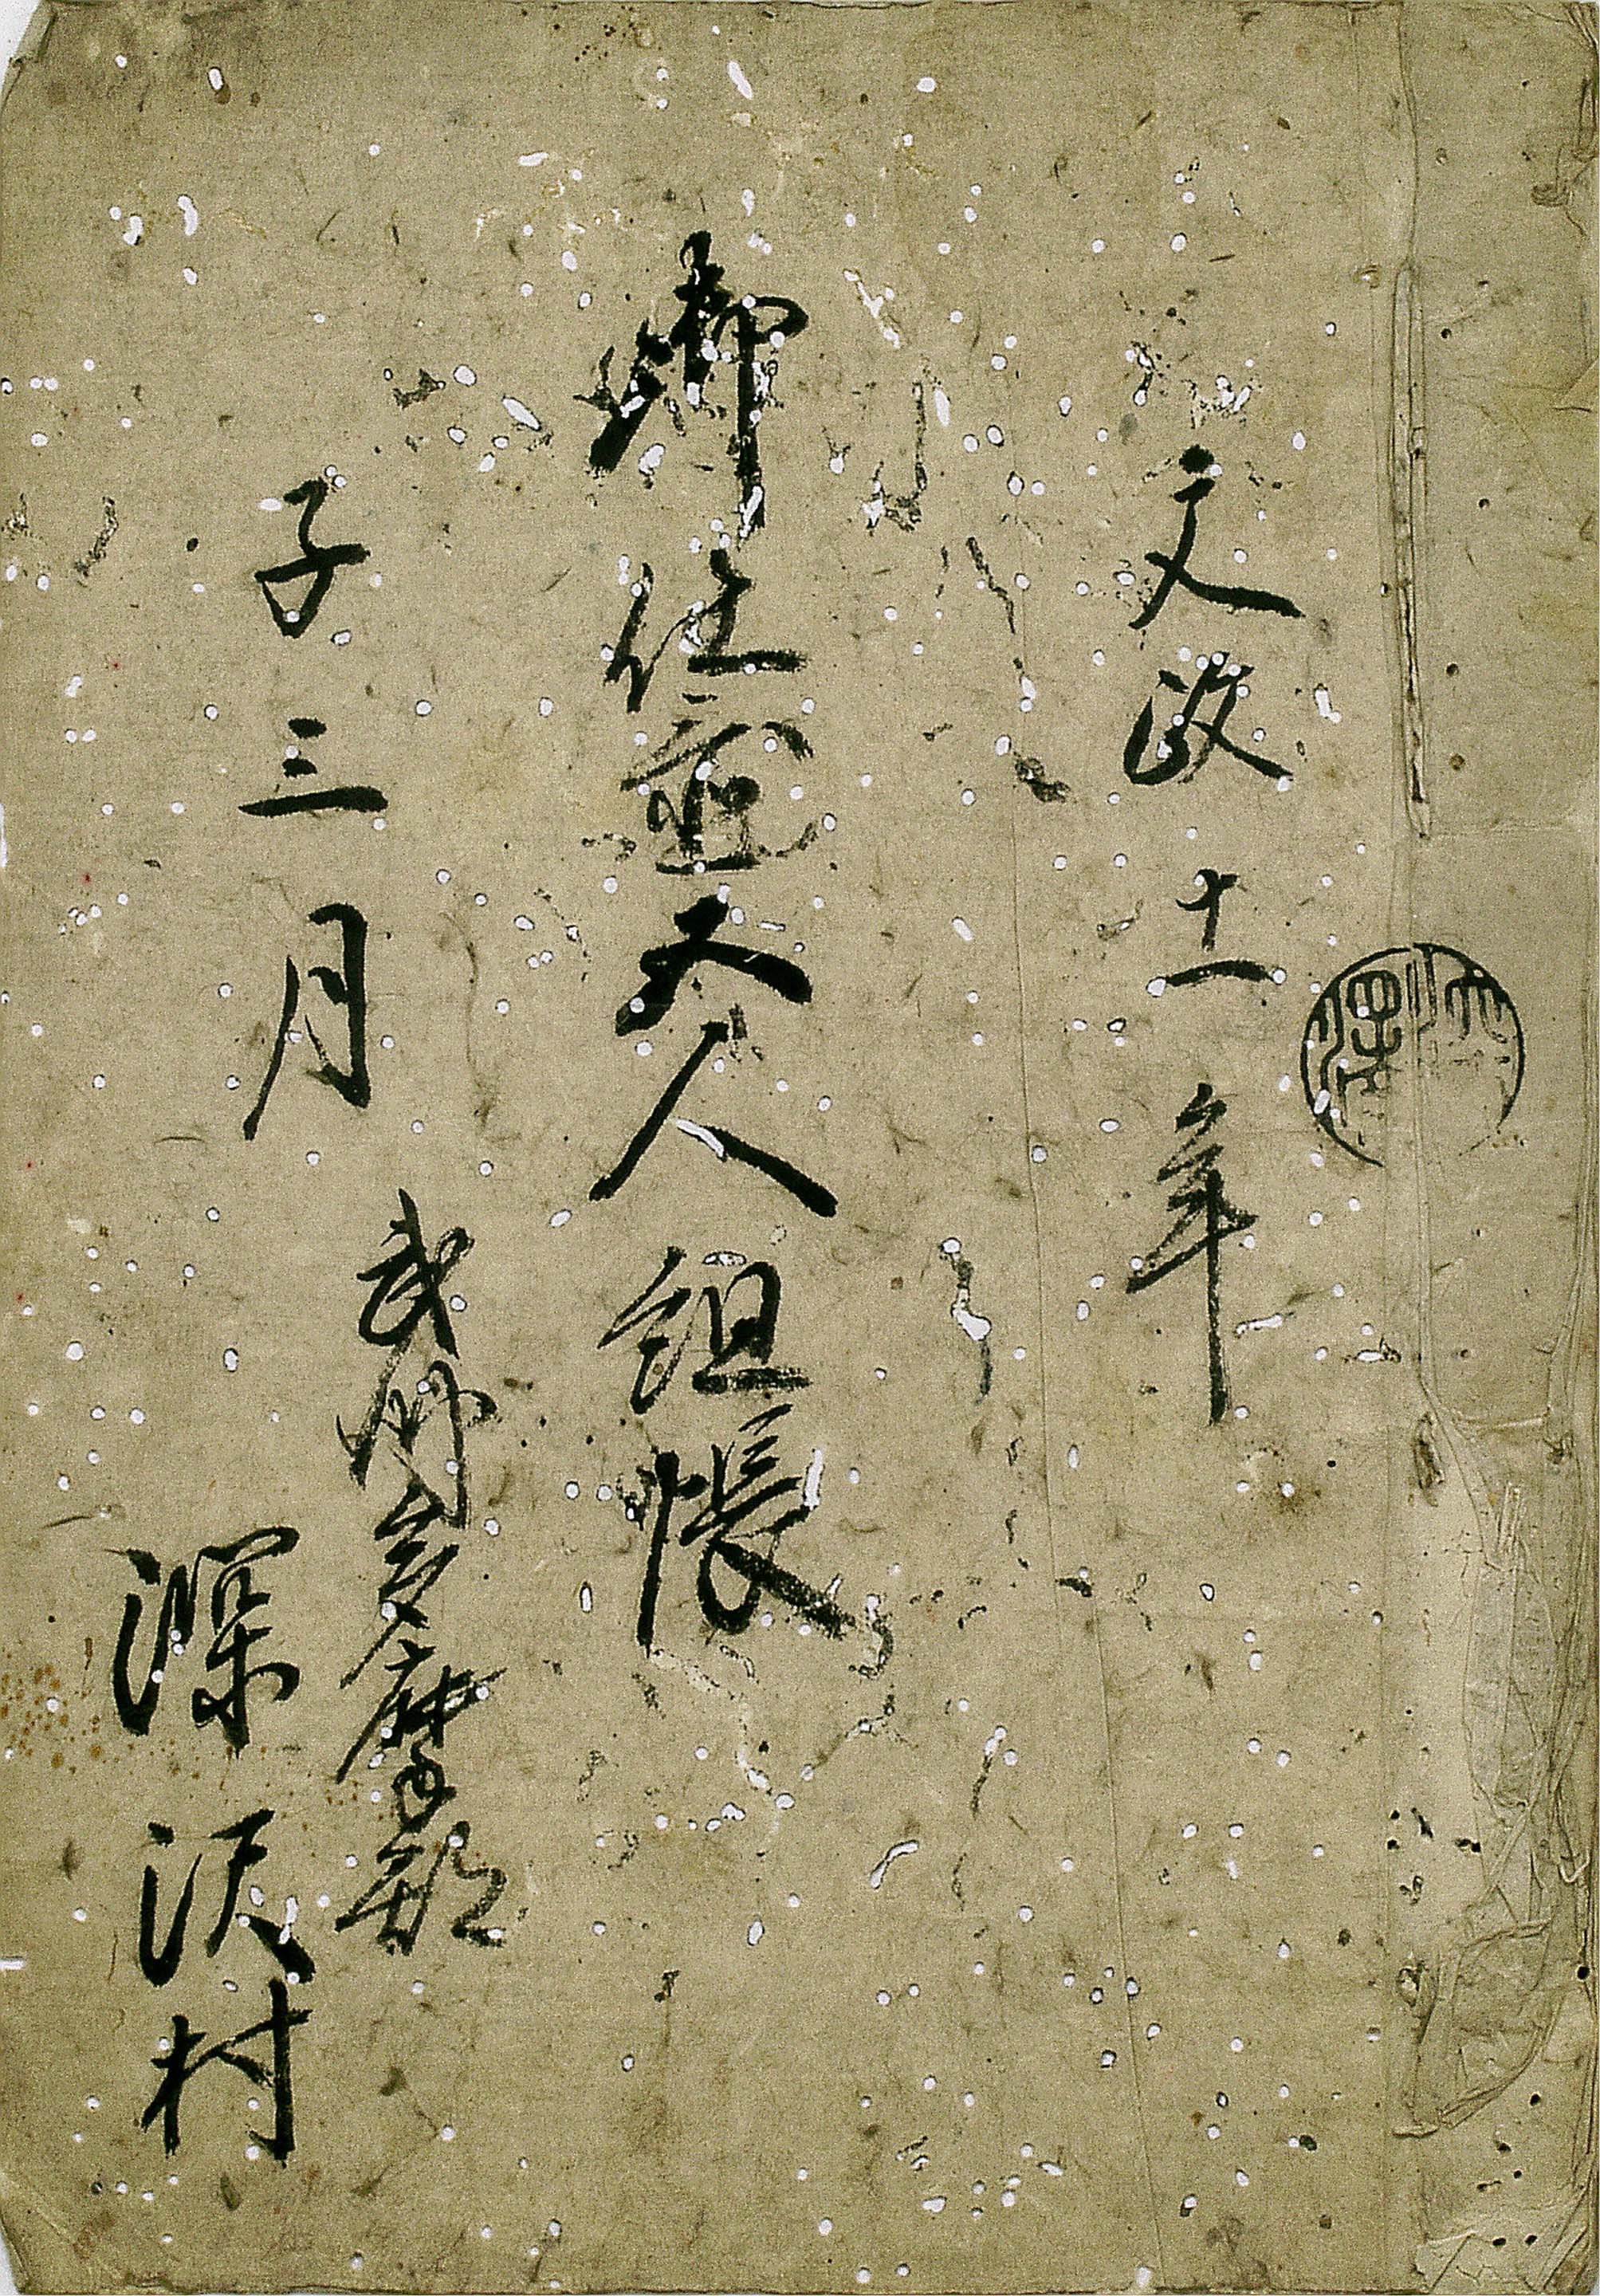 文政十一年
御仕置五人組帳
子三月
武州多摩郡
深沢村